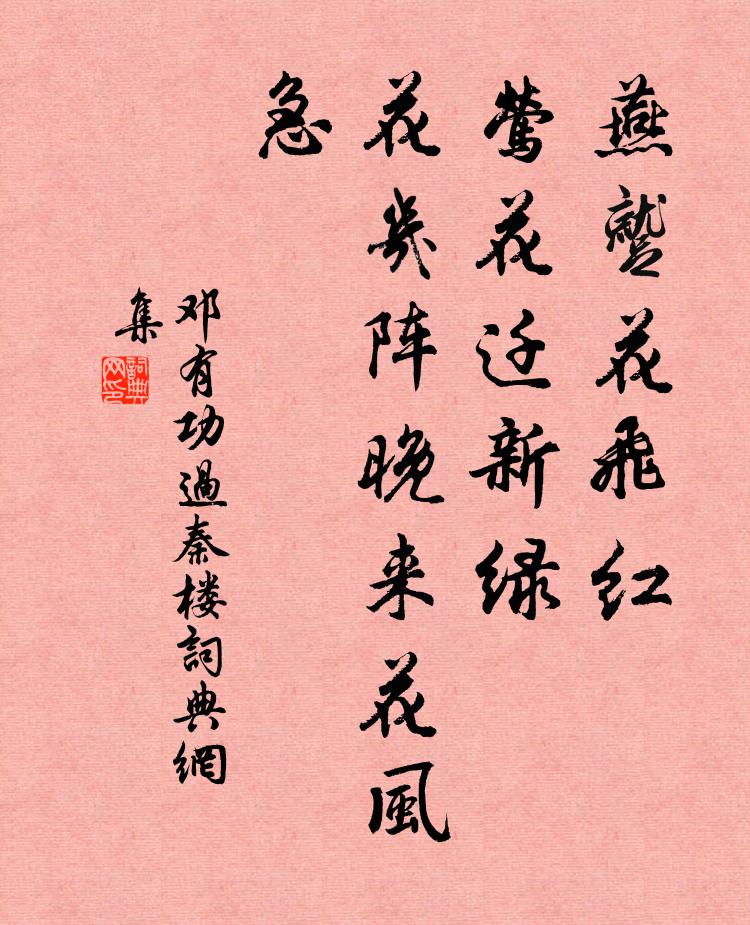 燕蹵花飛红
莺花迁新绿
花幾阵晚来花風
急
邓有功過秦楼詞典網
集
詞典
网印